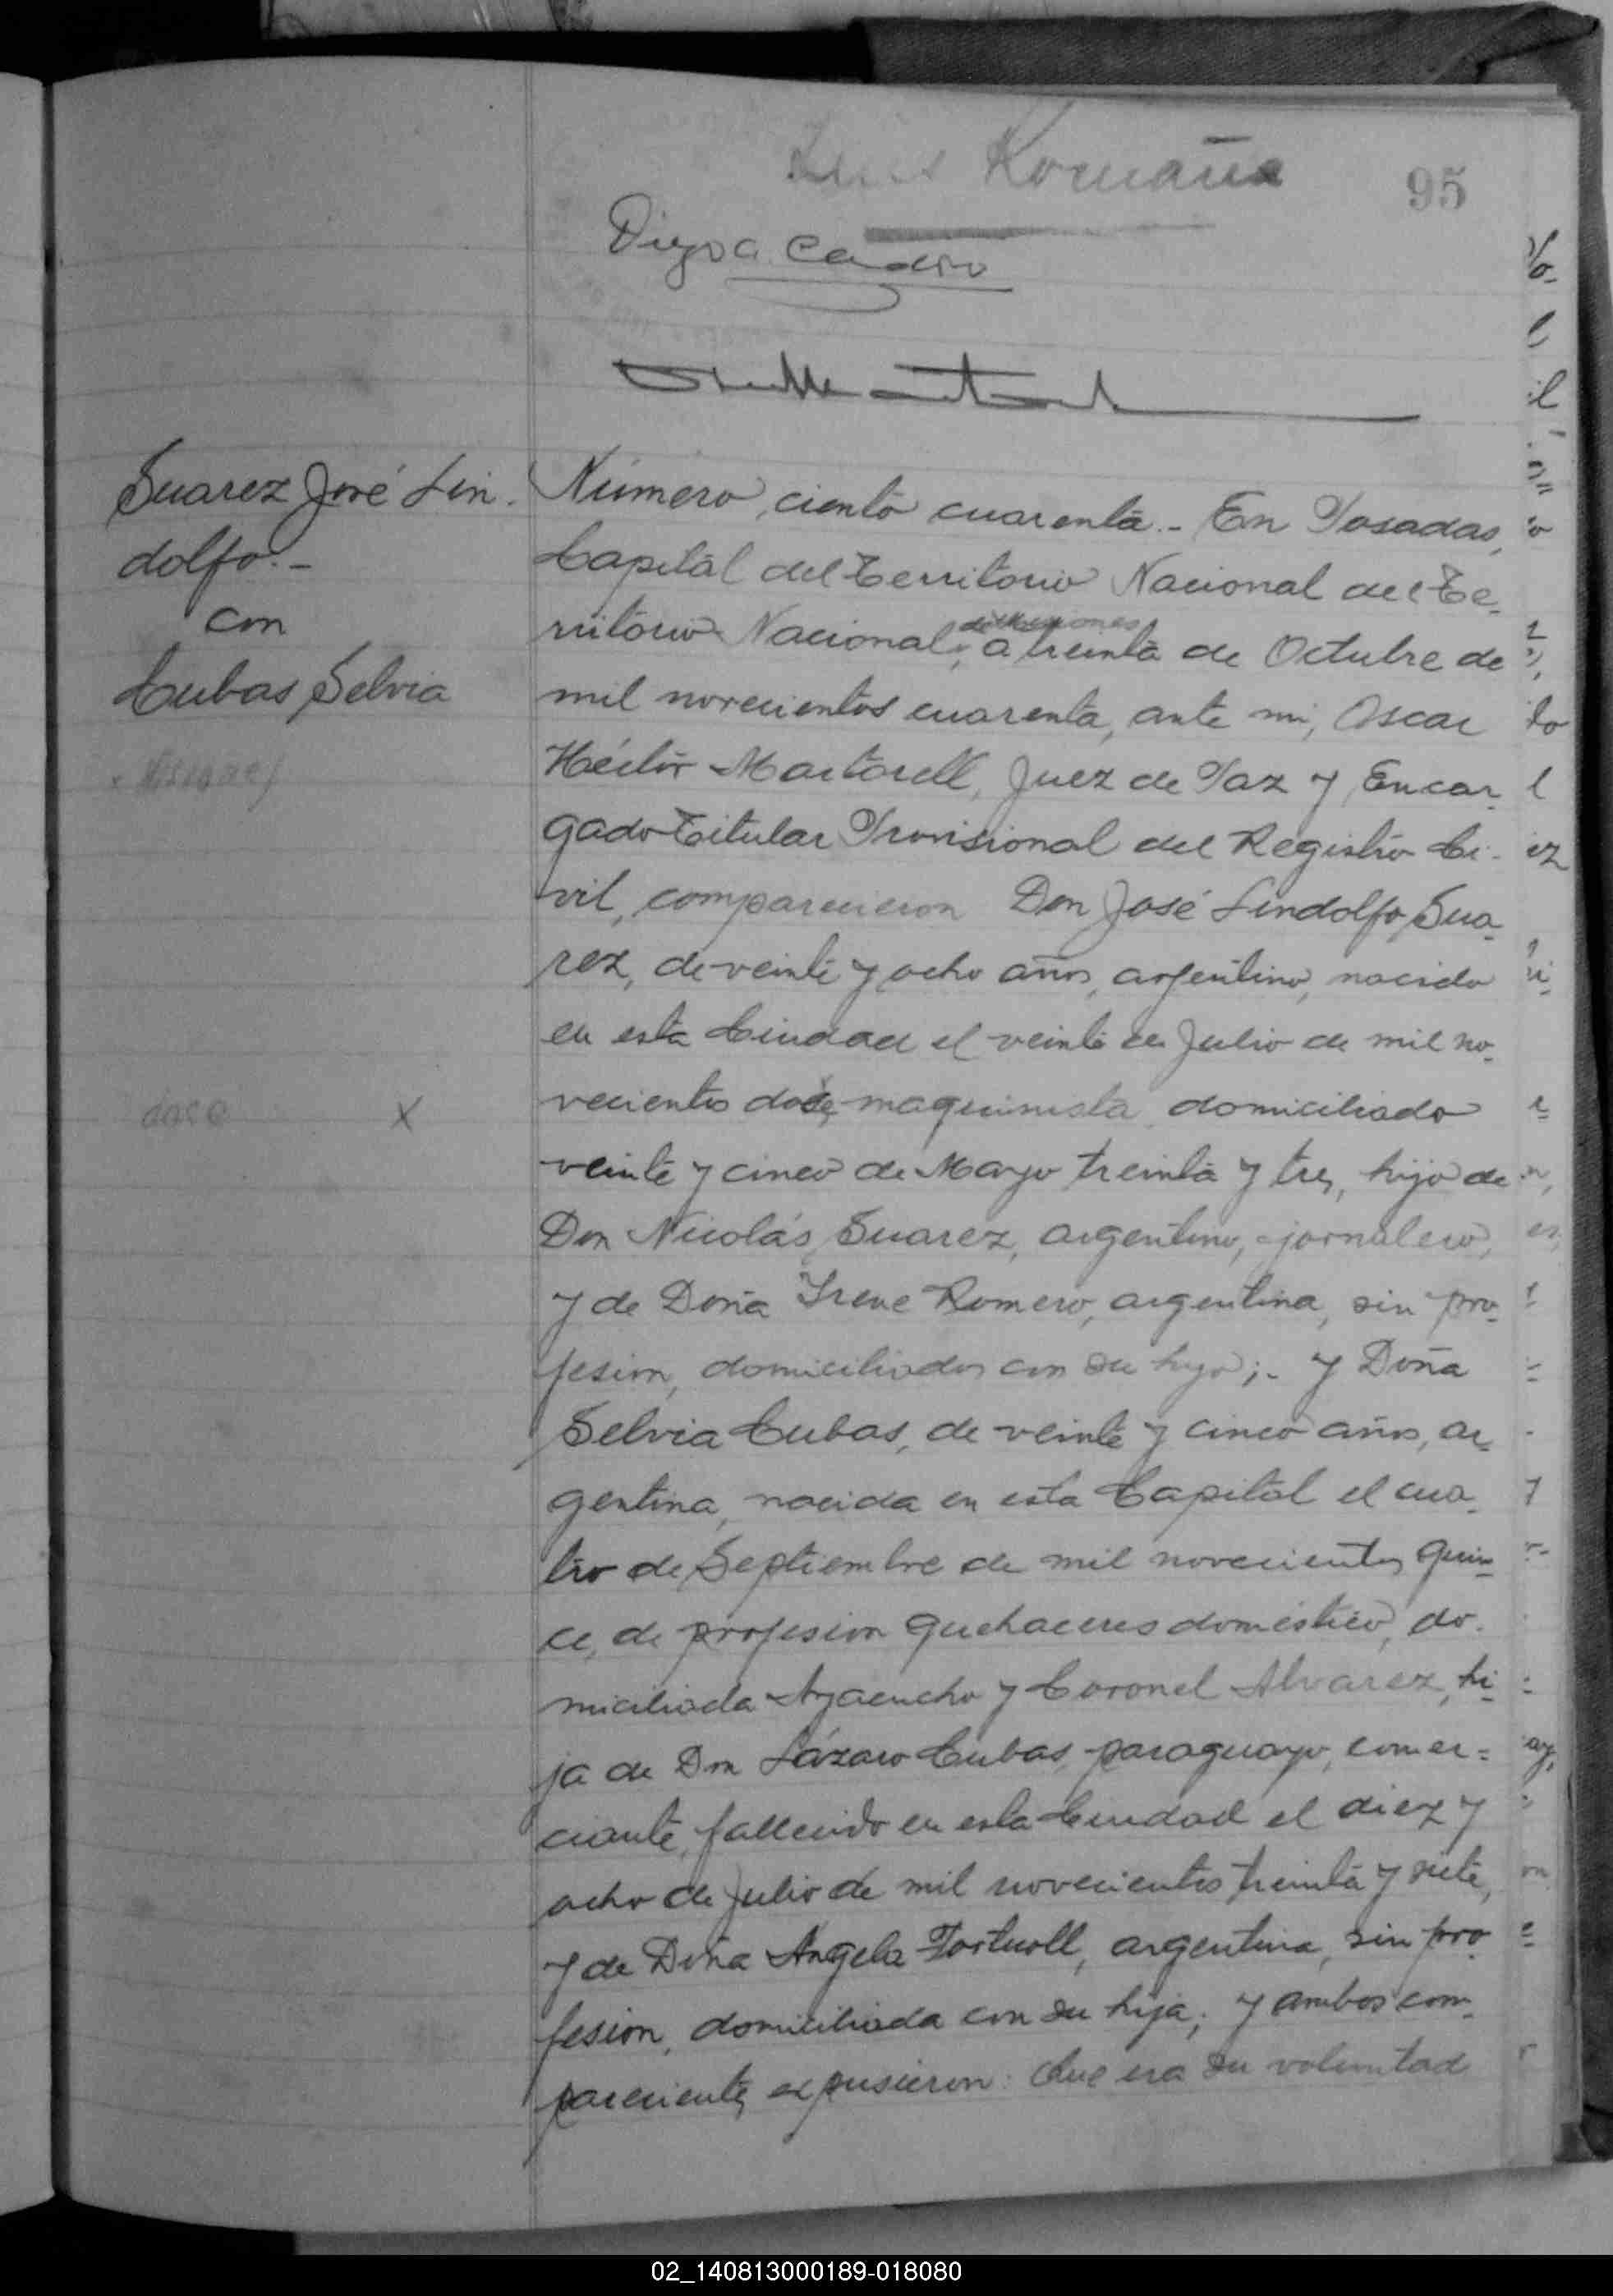 Luis Romaña
95
Diego A.
Suarez José Lin.
dolfo.-
con
Cubas Selvia
doce X
Número ciento cuarenta.- En Posadas,
Capital del Territorio Nacional del Te-
rritorio Nacional, de Misiones a treinta de Octubre de
mil novecientos cuarenta, ante mi, Oscar
Héctor Martorell, Juez de Paz y Encar-
gado Titular Provisional del Registro Ci-
vil, comparecieron Don José Lindolfo Sua-
rez, de veinte y ocho años, argentino, nacido
en esta Ciudad el veinte de Julio de mil no-
vecientos doce, maquinista, domiciliado
veinte y cinco de Mayo treinta y tres, hijo de
Don Nicolás Suarez, argentino, jornalero,
y de Doña Irene Romero, argentina, sin pro-
fesion, domiciliados con su hijo;- y Doña
Selvia Cubas, de veinte y cinco años, ar-
gentina, nacida en esta Capital el cua-
tro de Septiembre de mil novecientos quin-
ce, de profesion quehaceres doméstico, do-
miciliada Ayacucho y Coronel Alvarez, hi-
ja de Don Lázaro Cubas, paraguayo, comer=
ciante, fallecido en esta Ciudad el diez y
ocho de Julio de mil novecientos treinta y siete,
y de Doña Angela Tortuoll, argentina, sin pro-
fesion, domiciliada con su hija; y ambos com-
parecientes expusieron: Que era su voluntad
02_140813000189-018080